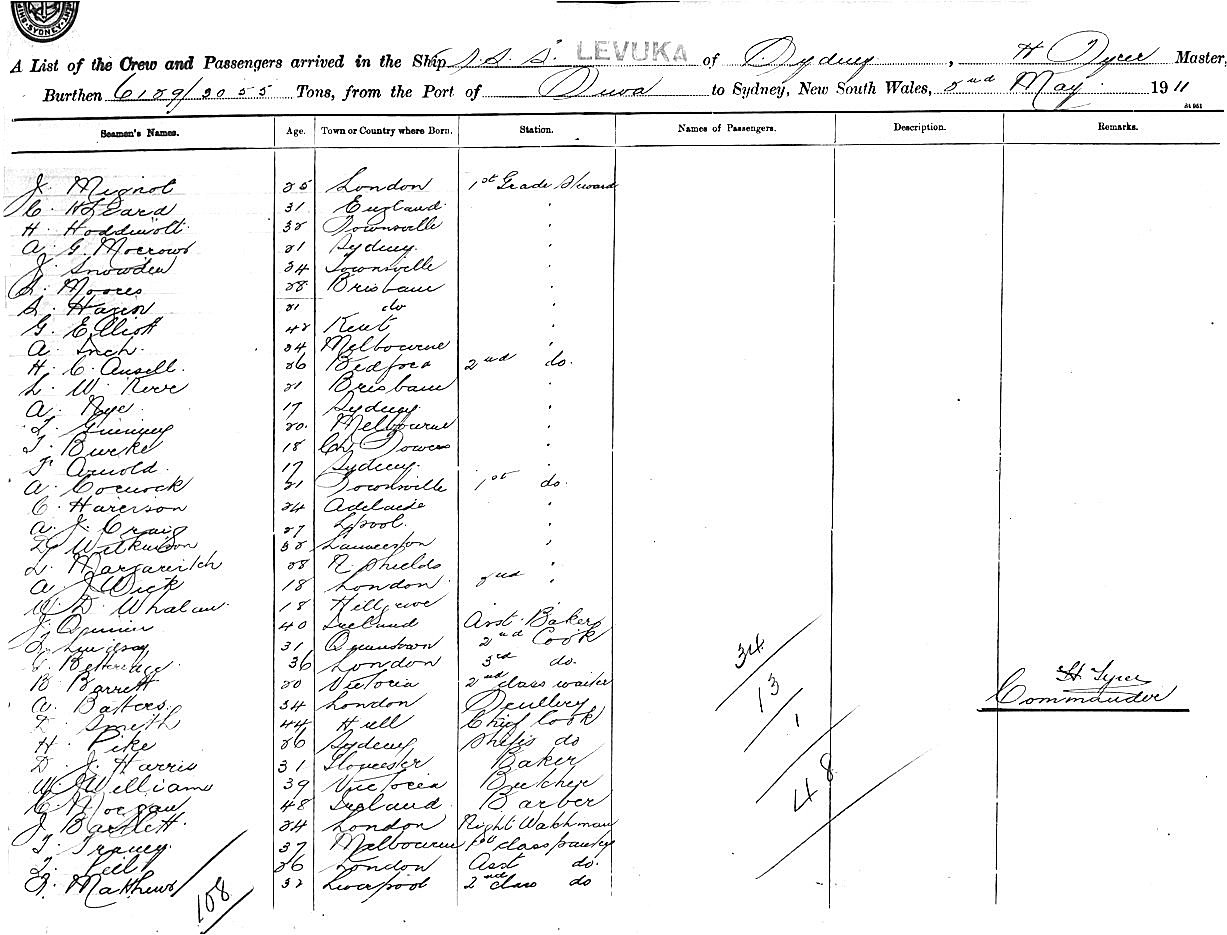 SYDNEY
A List of the Crew and Passengers arrived in the Ship S.S. LEVUKA of Sydney, H Tyrer Master,
Burthen 6129/3055 Tons, from the Port of Suva to Sydney, New South Wales, 2nd May 1911
Seamen's Names. Age. Town or Country where Born. Station. Names of Passengers. Description. Remarks.
J. Mignot 25 London 1st Grade Steward
C. H. Leard 31 England "
H. 32 Townsville "
A. G. Morrows 21 Sydney. "
J. Snowden 34 Townsville "
Moores 28 Brisbane "
Hazen 21 do "
G. Elliott 42 Kent "
A. Inch. 34 Melbourne "
H. C. Ansell. 26 Bedford 2nd do.
L. W. 21 Brisbane "
A. Nye. 17 Sydney. "
20. Melbourne "
T. Burke 18 Ch Towers "
F. Arnold. 17 Sydney. "
A. Cornock 21 Townsville 1st do.
C. Harrison 24 Adelaide "
A. J. Craig 27 Lpool. "
D. Wilkinson 32 Launceston "
L. Margaritch 28 N. Shields "
A. J. Wick 18 London. 2nd "
W. D. Whalan. 18 Hillgrove "
J. 40 Ireland Asst. Baker
Lindsay 31 Queenstown 2nd Cook
Betteridge. 36 London 3rd do. 34
B. Barrett 20 Victoria 2nd class waiter H. Tyrer
A. Batters. 34 London Scullery 13 Commander
D. Smith 44 Hull Chief Cook 1
H. Pike 26 Sydney Ship's do
D. J. Harris 31 Gloucester Baker
W. Williams 39 Victoria Butcher 48
C. Morgan 48 Ireland Barber
J. Bartlett. 24 London Night Watchman
T. Tracey. 37 Melbourne 1st class pantry
26 London Asst do.
Matthews 32 Liverpool 2nd class do
108